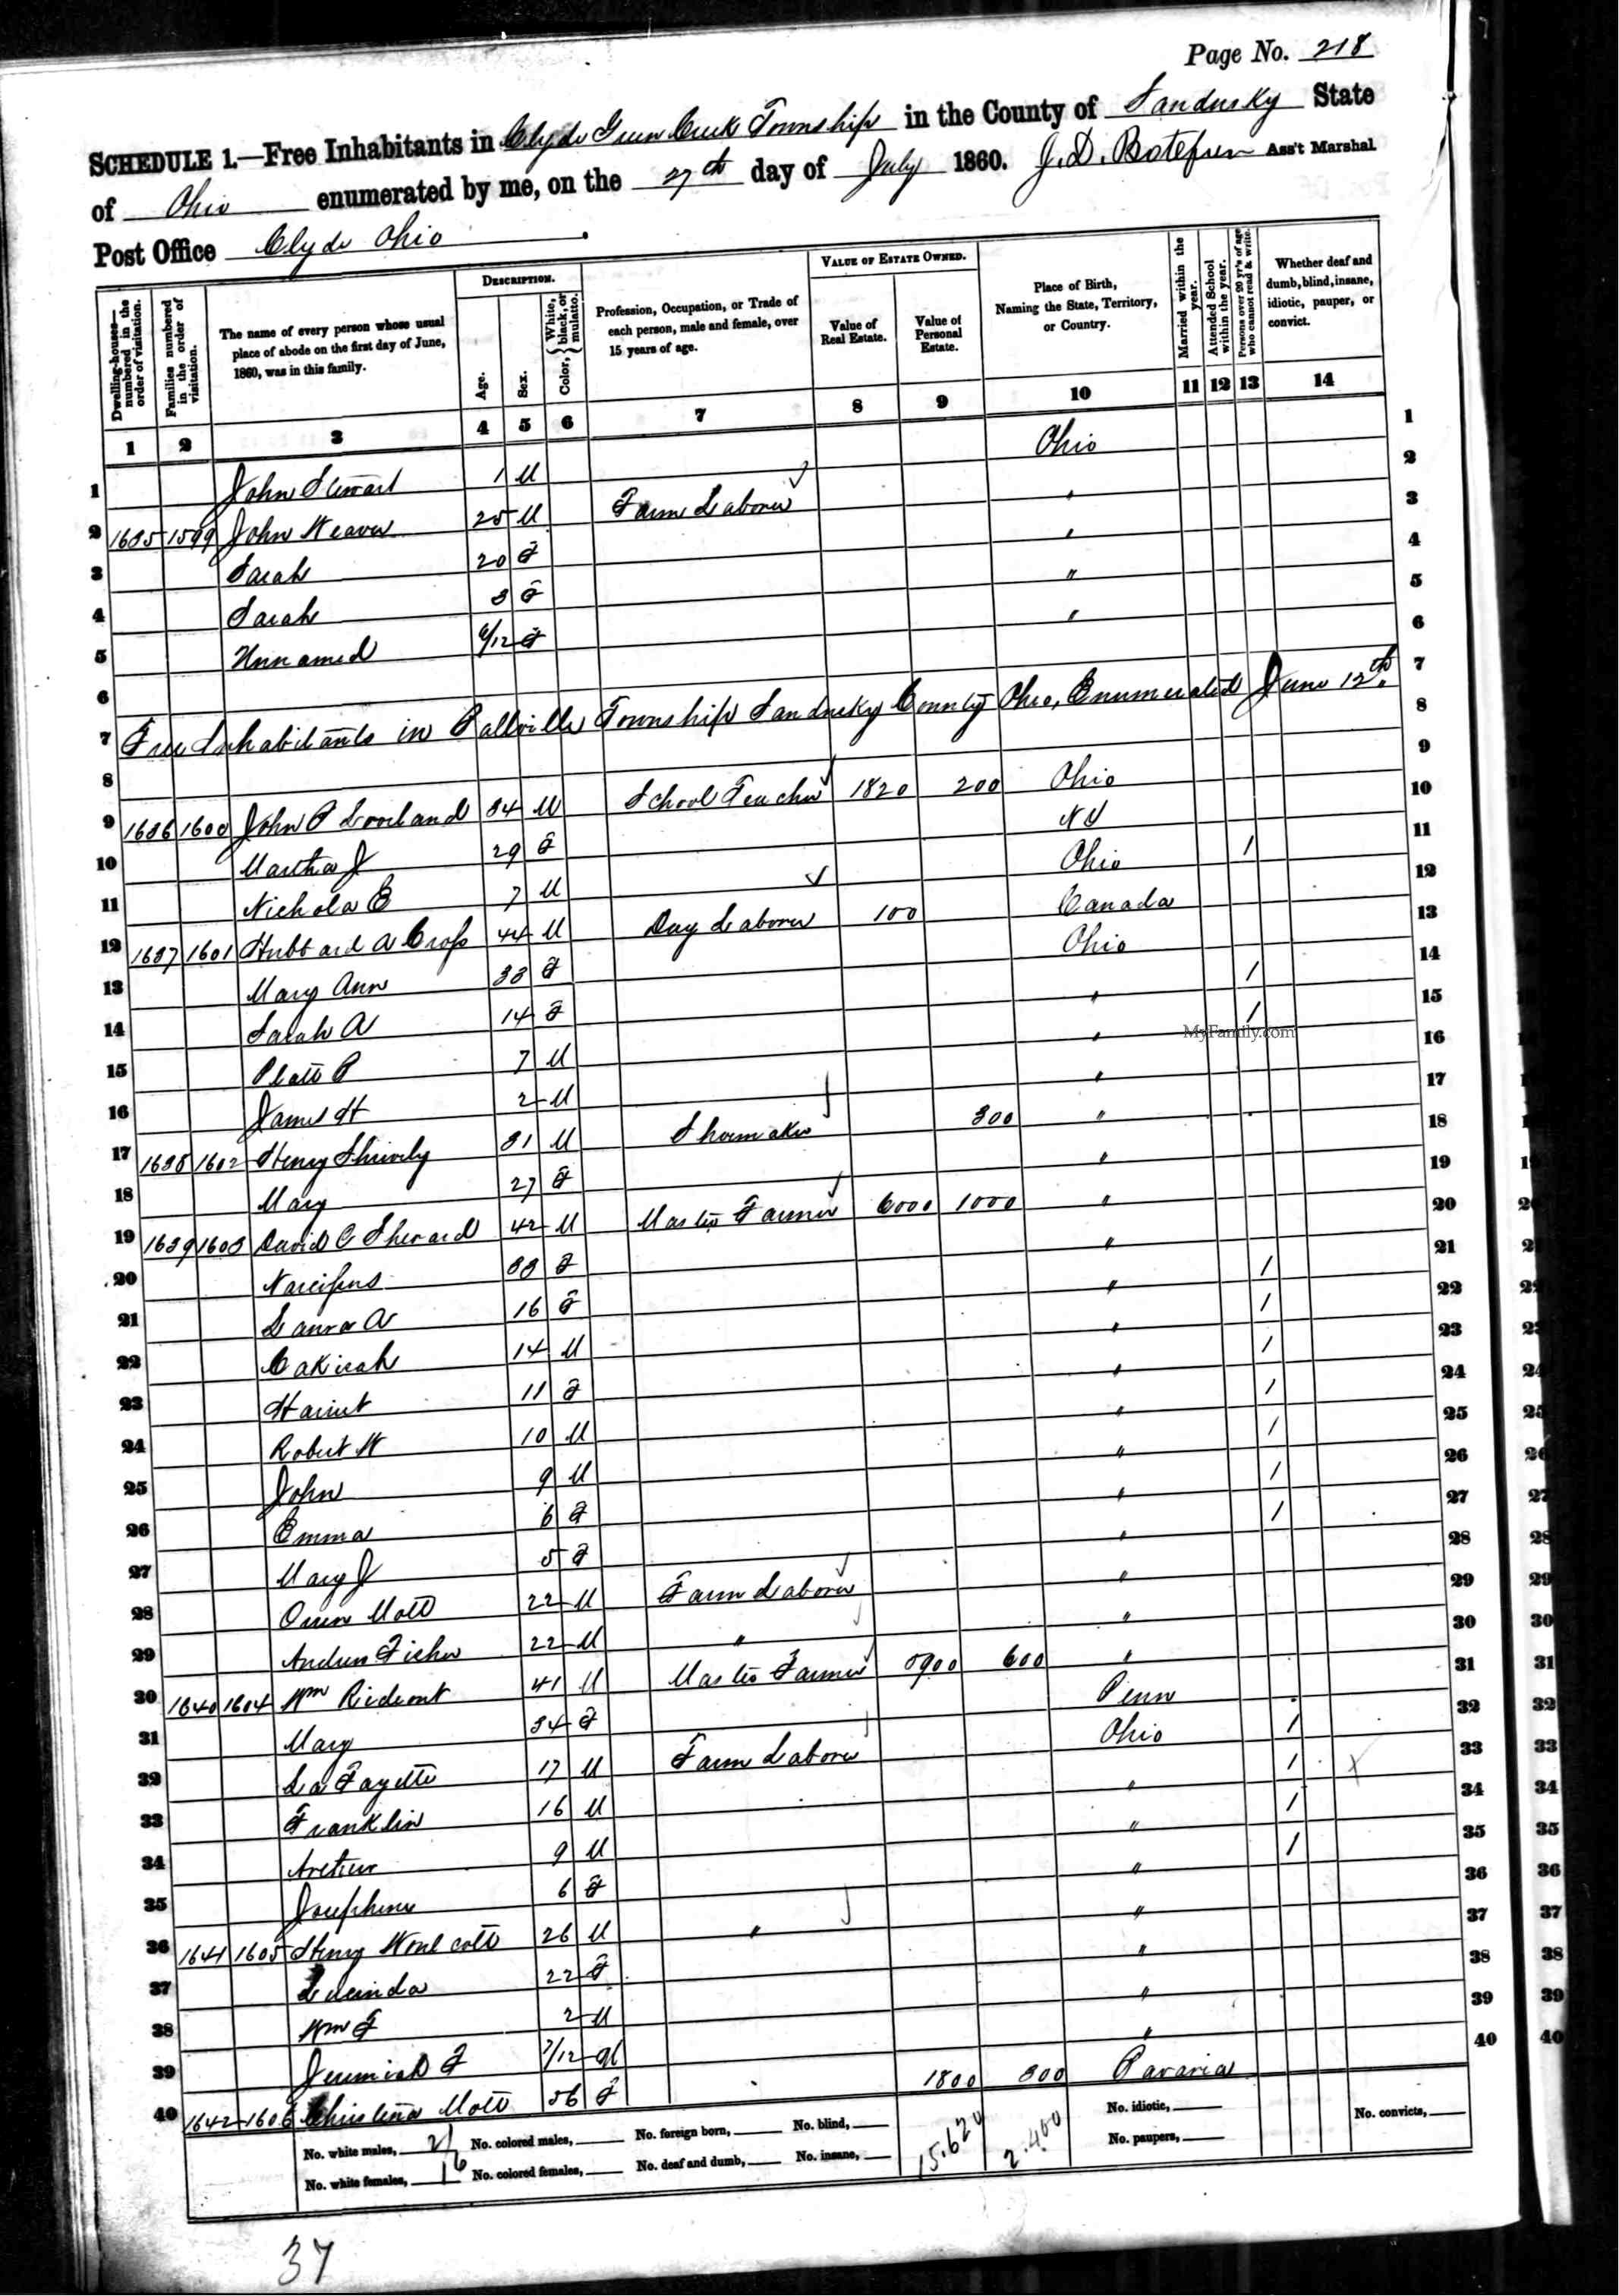 Page No. 218
SCHEDULE 1.—Free Inhabitants in Clyde Green Creek Township in the County of Sandusky State
of Ohio enumerated by me, on the 27th day of July 1860. J. D. Botefur Ass't Marshal
Post Office Clyde Ohio
DESCRIPTION. VALUE OF ESTATE OWNED.
Dwelling-houses—numbered in the order of visitation. Families numbered in the order of visitation. The name of every person whose usual place of abode on the first day of June, 1860, was in this family. Age. Sex. Color, { White, black, or mulatto. Profession, Occupation, or Trade of each person, male and female, over 15 years of age. Value of Real Estate. Value of Personal Estate. Place of Birth, Naming the State, Territory, or Country. Married within the year. Attended School within the year. Persons over 20 yr's of age who cannot read & write. Whether deaf and dumb, blind, insane, idiotic, pauper, or convict.
1 2 3 4 5 6 7 8 9 10 11 12 13 14
1 John Stewart 1 M Ohio 1
2 1635 1599 John Weaver 25 M Farm Laborer " 2
3 Sarah 20 F " 3
4 Sarah 3 F " 4
5 Unnamed 6/12 F " 5
6 6
7 Free Inhabitants in Ballville Township Sandusky County Ohio, Enumerated June 12th. 7
8 8
9 1636 1600 John P Loveland 34 M School Teacher 1820 200 Ohio 9
10 Martha J 29 F NY 10
11 Nichola E 7 M Ohio 1 11
12 1637 1601 Hubbard A Cross 44 M Day Laborer 100 Canada 12
13 Mary Ann 33 F Ohio 13
14 Sarah A 14 F " 1 14
15 Platt P 7 M " 1 15
16 James H 2 M " 16
17 1638 1602 Henry Shively 31 M Shoemaker 300 " 17
18 Mary 27 F " 18
19 1639 1603 David C Sherard 42 M Master Farmer 6000 1000 " 19
20 Narcissus 33 F " 20
21 Laura A 16 F " 1 21
22 14 M " 1 22
23 Harriet 11 F " 1 23
24 Robert W 10 M " 1 24
25 John 9 M " 1 25
26 Emma 6 F " 1 26
27 Mary J 5 F " 1 27
28 Orren Mott 22 M Farm Laborer " 28
29 Andrew Fisher 22 M " " 29
30 1640 1604 Wm Rideout 41 M Master Farmer 5900 600 " 30
31 Mary 34 F Penn 31
32 La Fayette 17 M Farm Laborer Ohio 1 32
33 Franklin 16 M " 1 33
34 9 M " 1 34
35 Josephine 6 F " 1 35
36 1641 1605 Henry Woolcott 26 M " " 36
37 Lucinda 22 F " 37
38 Wm F 2 M " 38
39 Jeremiah F 7/12 M " 39
40 1642 1606 Christena Mott 56 F 1800 300 Bavaria 40
No. white males, 21 No. colored males, No. foreign born, No. blind, 15.620 2.400 No. idiotic, No. convicts,
No. white females, 16 No. colored females, No. deaf and dumb, No. insane, No. paupers,
37
MyFamily.com